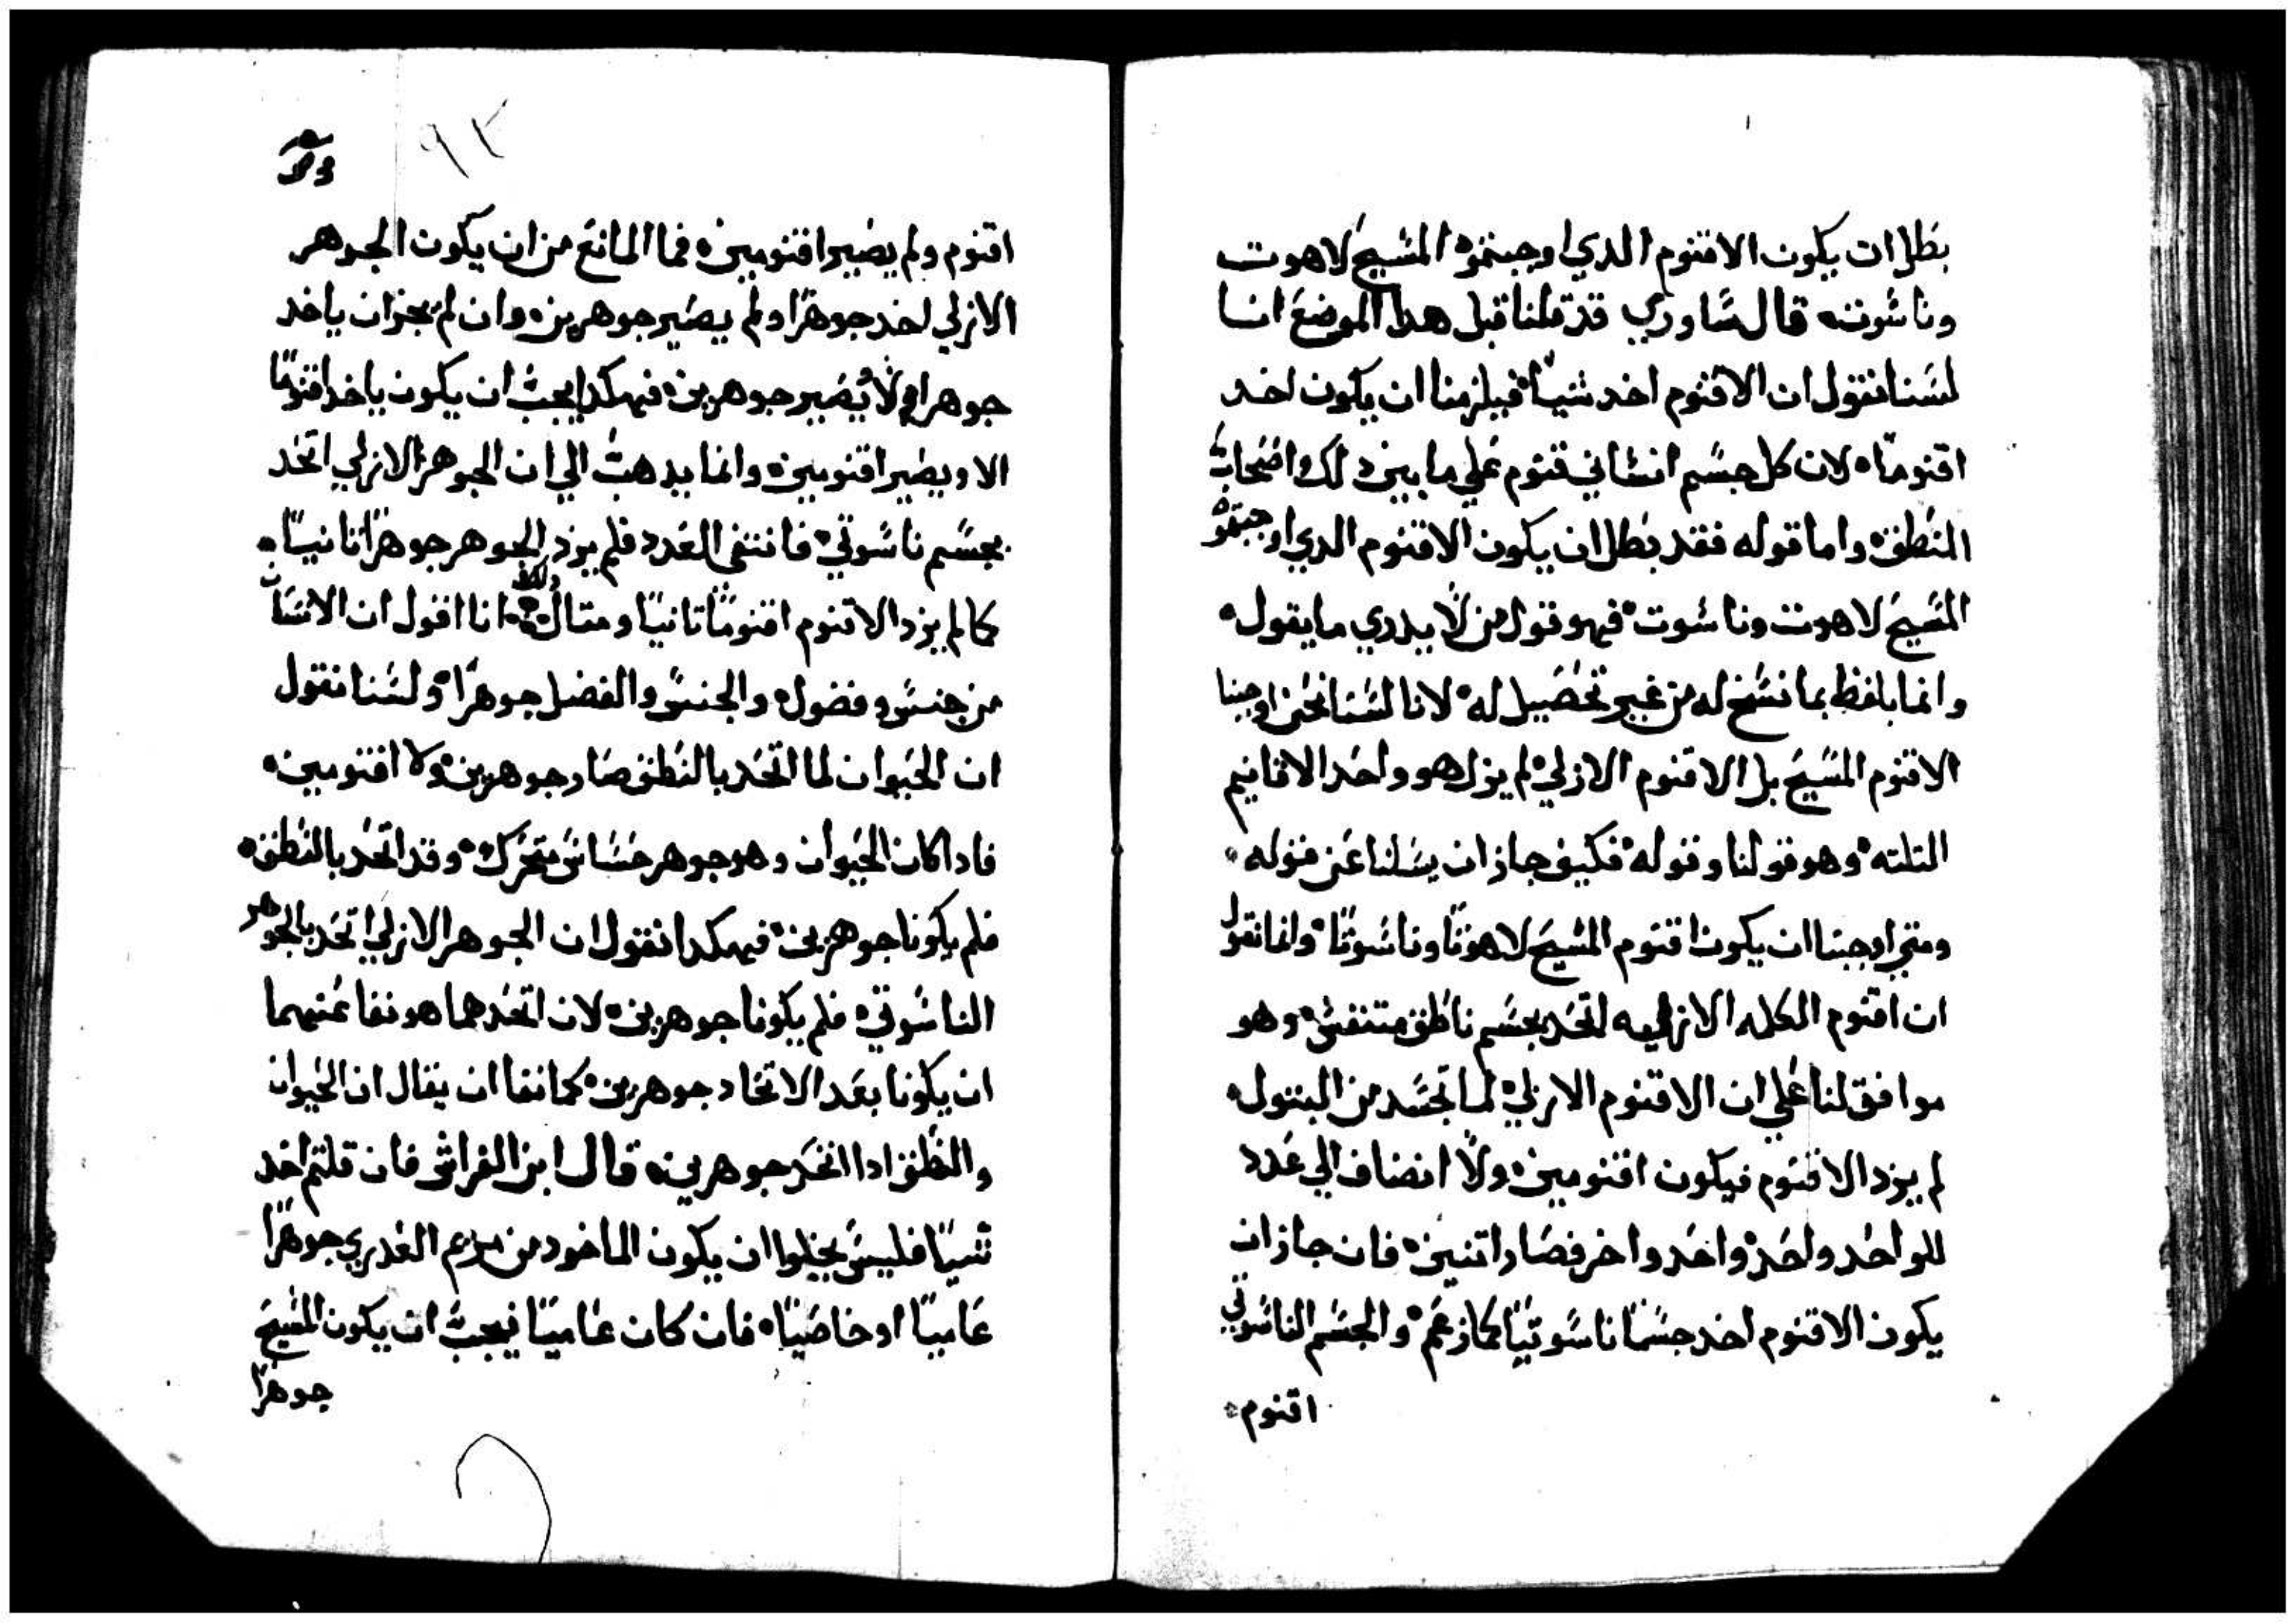 بطل ان يكون الاقنوم الدي اوجبتموه المسيح لاهوت
وناسوت قال ساوري قد قلنا قبل هدا الموضع اننا
لسنا نقول ان الاقنوم اخد شياً فيلزمنا ان يكون اخد
اقنوماً لان كل جسم انساني قنوم علي ما بين دلك اصحاب
المنطق واما قوله فقد بطل ان يكون الاقنوم الدي اوجبتموه
المسيح لاهوت وناسوت فهو قول من لا يدري ما يقول
وانما يلفظ بما نسخ له من غير تحصيل له لانا لسنا نحن اوجبنا
الاقنوم المسيح بل الاقنوم الازلي لم يزل هو واحد الاقانيم
التلته وهو قولنا وقوله فكيف جاز ان يسلنا عن قوله
ومتي اوجبنا ان يكون اقنوم المسيح لاهوتاً وناسوتاً وانما نقول
ان اقنوم الكلمه الازليه اتحد بجسم ناطق متنفس وهو
موافق لنا علي ان الاقنوم الازلي لما تجسد من البتول
لم يزد الاقنوم فيكون اقنومين ولا انضاف الي عدد
للواحد واحد واحد واخر فصار اتنين فان جاز ان
يكون الاقنوم اخد جسماً ناسوتياً كما زعم والجسم الناسوتي
اقنوم
٩٢
اقنوم ولم يصير اقنومين فما المانع من ان يكون الجوهر
الازلي اخد جوهراً ولم يصير جوهرين وان لم يجز ان ياخد
جوهرا ولا يصير جوهرين فهكدا يجب ان يكون ياخد اقنوماً
الا ويصير اقنومين وانما يدهب الي ان الجوهر الازلي اتحد
بجسم ناسوتي فانتفي العدد فلم يزد الجوهر جوهراً تانياً
كما لم يزد الاقنوم اقنوماً تانياً ومتال دلك انا اقول ان الانسان
من جنس وفصول والجنس والفصل جوهراً ولسنا نقول
ان الحيوان لما اتحد بالنطق صار جوهرين ولا اقنومين
فادا كان الحيوان وهو جوهر حساس متحرك وقد اتحد بالنطق
فلم يكونا جوهرين فهكدا نقول ان الجوهر الازلي اتحد بالجوهر
الناسوتي فلم يكونا جوهرين لان اتحدهما هو نفا عنهما
ان يكونا بعد الاتحاد جوهرين كما نفا ان يقال ان الحيوان
والنطق ادا اتحد جوهرين قال ابن الفراش فان قلتم اخد
شياً فليس يخلوا ان يكون الماخود من مريم العدري جوهراً
عامياً او خاصياً فان كان عامياً فيجب ان يكون المسيح
جوهراً